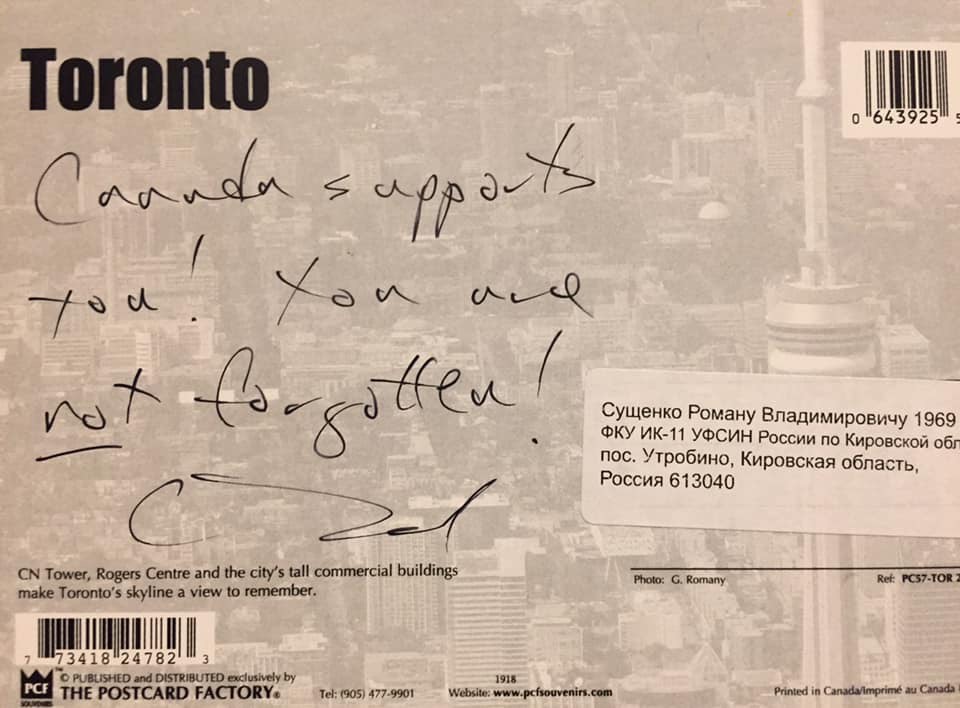 Toronto
0 643925 5
Canada supports
you! You are
not forgotten!
Сущенко Роману Владимировичу 1969
ФКУ ИК-11 УФСИН России по Кировской обл
пос. Утробино, Кировская область,
Россия 613040
CN Tower, Rogers Centre and the city's tall commercial buildings
make Toronto's skyline a view to remember.
Photo: G. Romany Ref: PC57-TOR 2
7 73418 24782 3
PCF SOUVENIRS
™ © PUBLISHED and DISTRIBUTED exclusively by
THE POSTCARD FACTORY®
Tel: (905) 477-9901
1918
Website: www.pcfsouvenirs.com
Printed in Canada/Imprimé au Canada